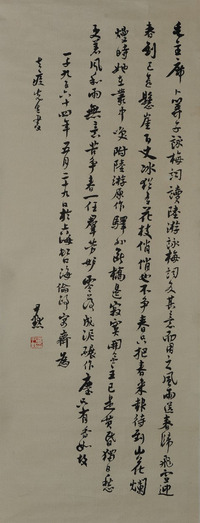 毛主席卜算子詠梅詞讀陸游詠梅詞反其意而用之風雨送春歸飛雪迎
春到已是懸崖百丈冰猶有花枝俏俏也不爭春只把春來報待到山花爛
熳時她在叢中笑附陸游原作驛外斷橋邊寂寞開無主已是黃昏獨自愁
更著風和雨無意苦爭春一任羣芳妒零落成泥碾作塵只有香如故
一千九百六十四年五月二十九日於上海虹口海倫路寓齋為
先生書
尹默